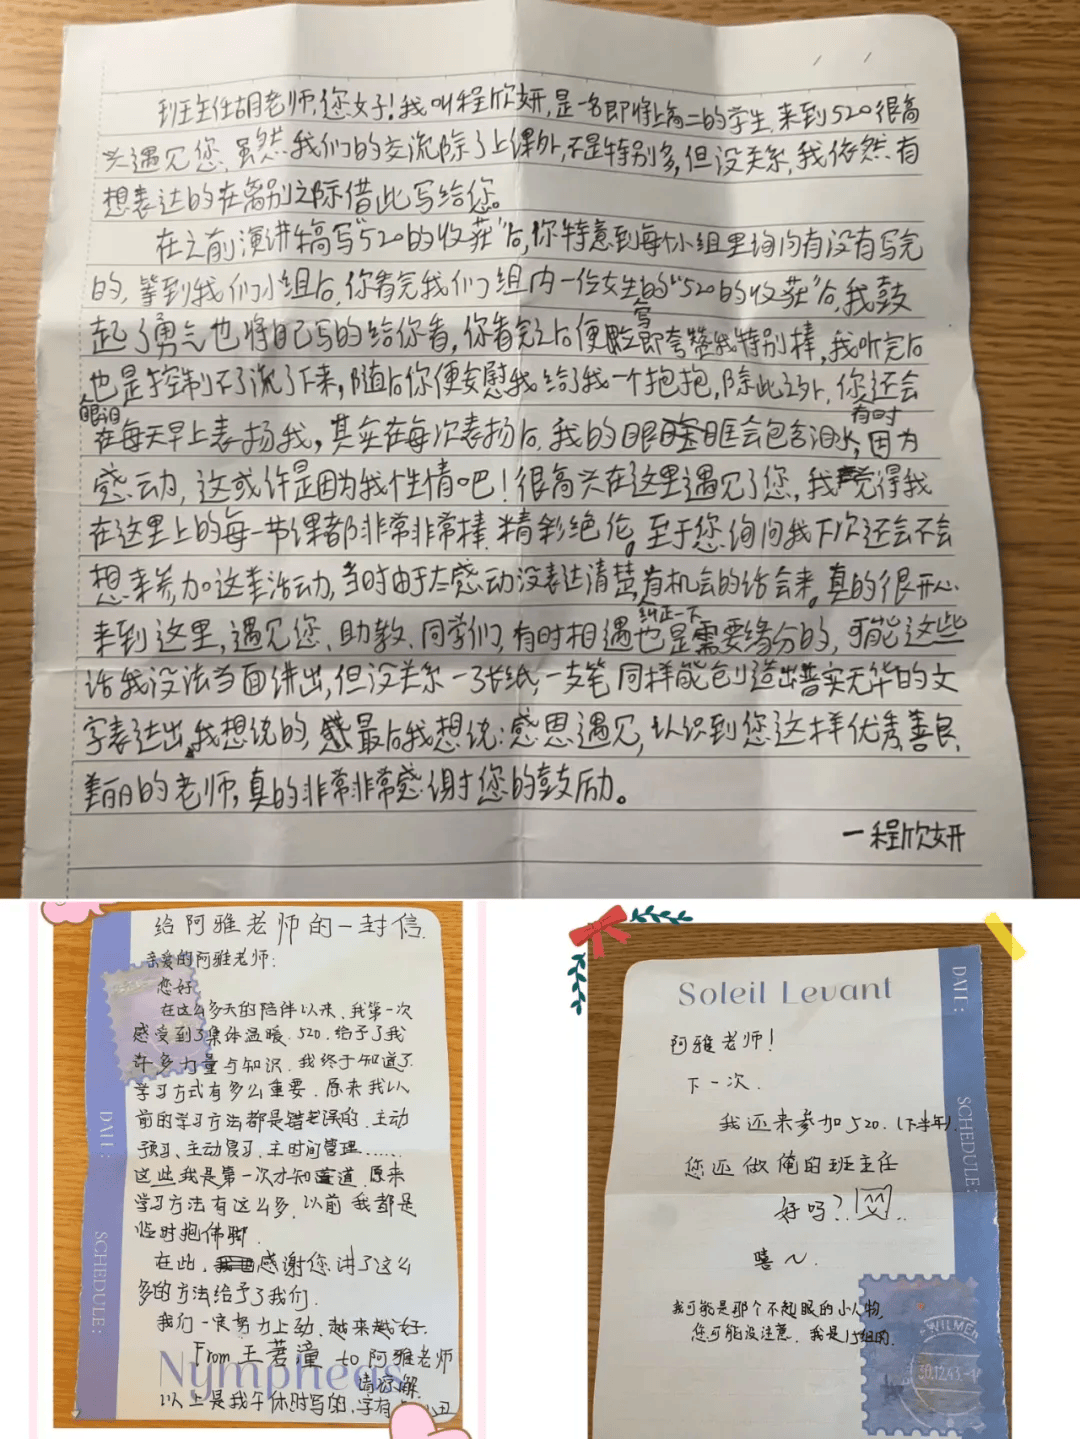 班主任胡老师,您好!我叫程欣妍,是一名即将上高二的学生,来到520很高
兴遇见您,虽然我们的交流除了上课外,不是特别多,但没关系,我依然有
想表达的在离别之际借此写给您。
在之前演讲稿写“520的收获”后,你特意到每个小组里询问有没有写完
的,等到我们小组后,你看完我们组内一位女生的“520的收获”后,我鼓
起了勇气也将自己写的给你看,你看完之后便立即夸赞我写特别棒,我听完后
眼泪
也是控制不了流了下来,随后你便安慰我给了我一个抱抱,除此之外,你还会
在每天早上表扬我,其实在每次表扬后,我的眼眶有时会包含泪水,因为
感动,这或许是因为我性情吧!很高兴在这里遇见了您,我觉得我
在这里上的每一节课都非常非常棒,精彩绝伦。至于您询问我下次还会不会
想来参加这类活动,当时由于太感动没表达清楚,纠正一下,有机会的话会来。真的很开心
来到这里,遇见您、助教、同学们,有时相遇也是需要缘分的,可能这些
话我没法当面讲出,但没关系一张纸,一支笔同样能创造出普实无华的文
字表达出我想说的,最后我想说:感恩遇见,认识到您这样优秀,善良,
美丽的老师,真的非常非常感谢您的鼓励。
一程欣妍
给阿雅老师的一封信.
亲爱的阿雅老师:
您好
在这么多天的陪伴以来,我第一次
感受到了集体温暖.520.给予了我
许多力量与知识.我终于知道了
学习方式有多么重要.原来我以
前的学习方法都是错误的.主动
预习、主动复习、主时间管理......
这些我是第一次才知道.原来
学习方法有这么多.以前我都是
临时抱佛脚.
在此.感谢您讲了这么
多的方法给予了我们.
我们一定努力上劲.越来越好.
From 王若潼 to 阿雅老师
Nympheas
请谅解
以上是我午休时写的,字有 丑
DATE:
SCHEDULE:
Soleil Levant
DATE:
SCHEDULE:
阿雅老师!
下一次.
我还来参加520.(下半年).
您还做俺的班主任
好吗?
嘻~
我可能是那个不起眼的小人物,
您可能没注意.我是15组的.
WILMEr
30.12.43.-1